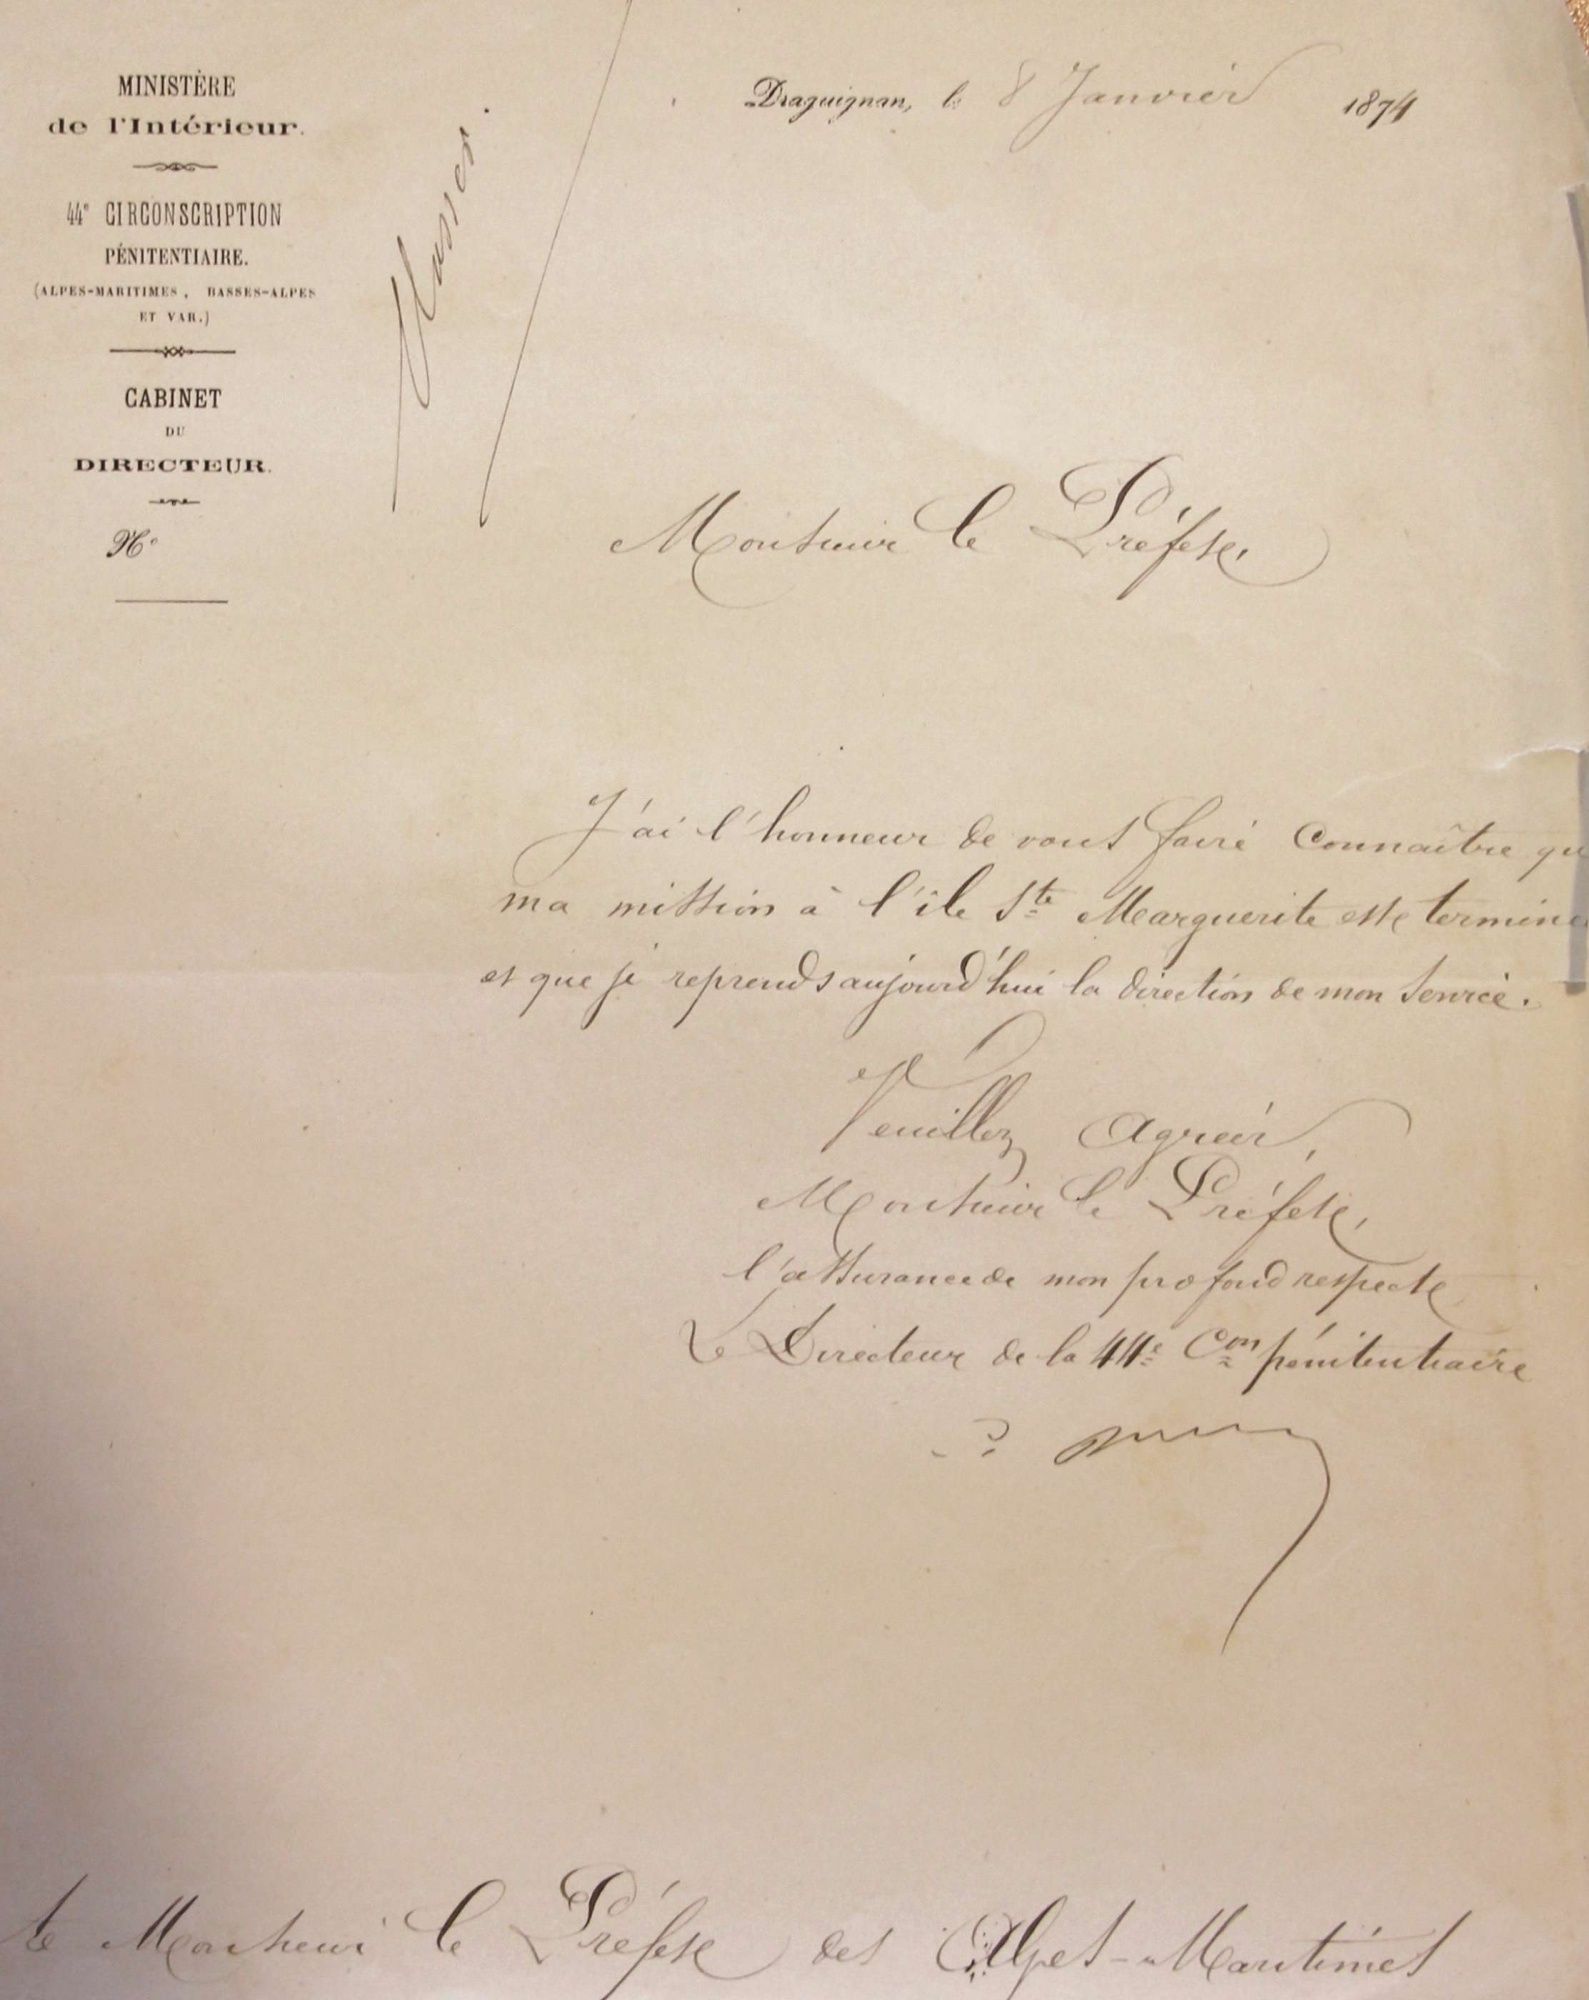 MINISTÈRE
de l'Intérieur.
44e CIRCONSCRIPTION
PÉNITENTIAIRE.
(ALPES-MARITIMES, BASSES-ALPES
ET VAR.)
CABINET
DU
DIRECTEUR.
No
Classer.
Draguignan, le 8 Janvier 1874
Monsieur le Préfet,
J'ai l'honneur de vous faire connaître que
ma mission à l'île Ste Marguerite est terminée
et que je reprends aujourd'hui la direction de mon Service.
Veuillez Agréer,
Monsieur le Préfet,
l'assurance de mon profond respect
Le Directeur de la 44e Con pénitentiaire
Monsieur le Préfet des Alpes-Maritimes